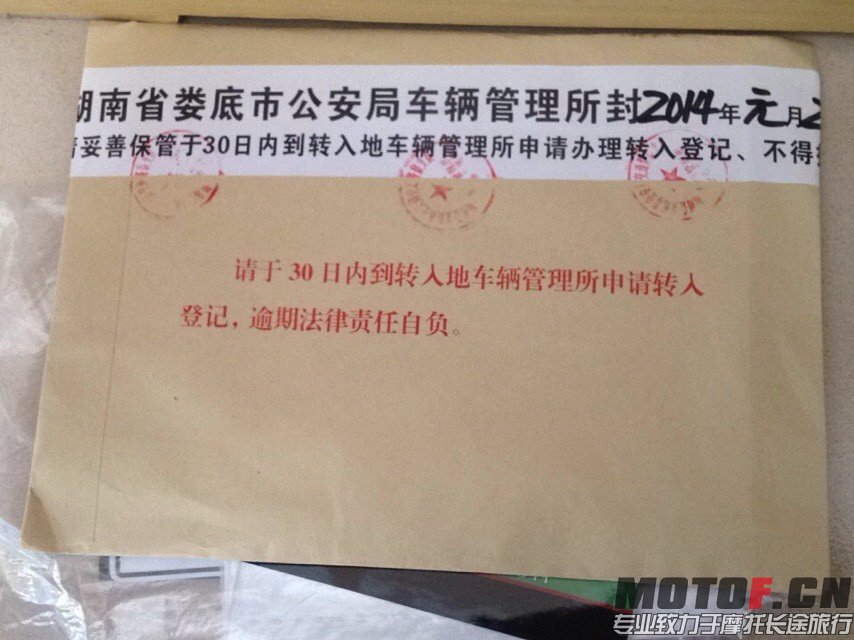 湖南省娄底市公安局车辆管理所封2014年元月2
请妥善保管于30日内到转入地车辆管理所申请办理转入登记、不得
请于30日内到转入地车辆管理所申请转入
登记，逾期法律责任自负。
MOTOF.CN
专业致力于摩托长途旅行